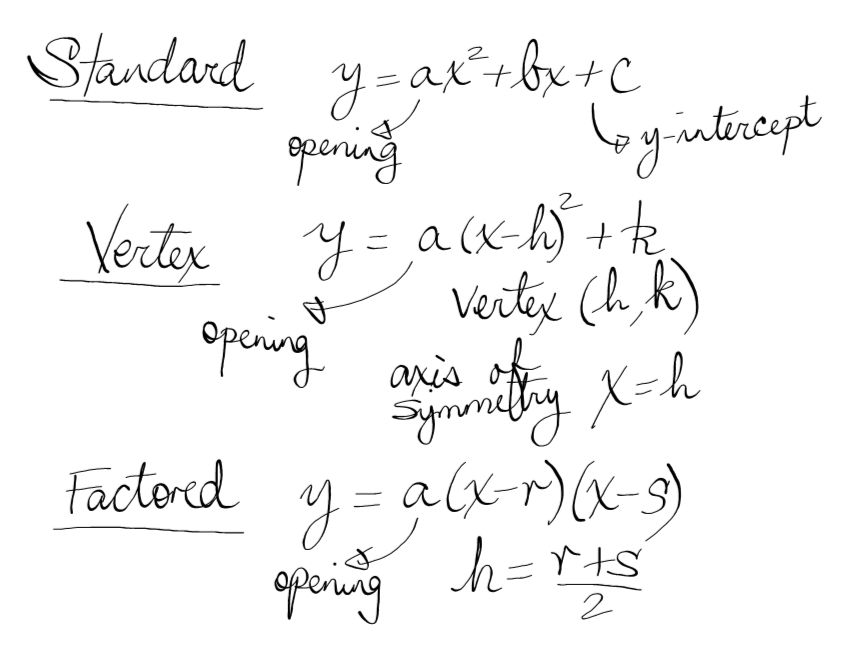 Standard y = ax² + bx + c
opening
y-intercept
Vertex y = a(x-h)² + k
Vertex (h,k)
opening
axis of
symmetry x = h
Factored y = a(x-r)(x-s)
opening h = r+s
2